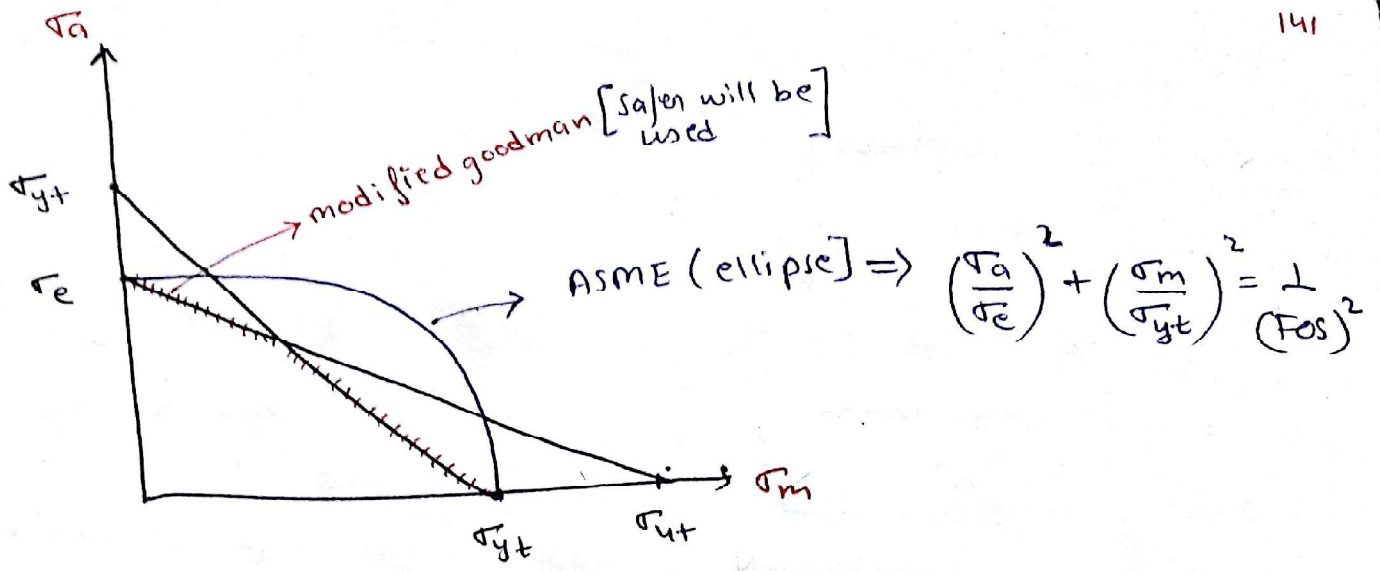 141
σa
modified goodman [safer will be used]
σyt
ASME (ellipse] ⇒ (σa/σe)² + (σm/σyt)² = 1/(FOS)²
σe
σm
σyt
σut